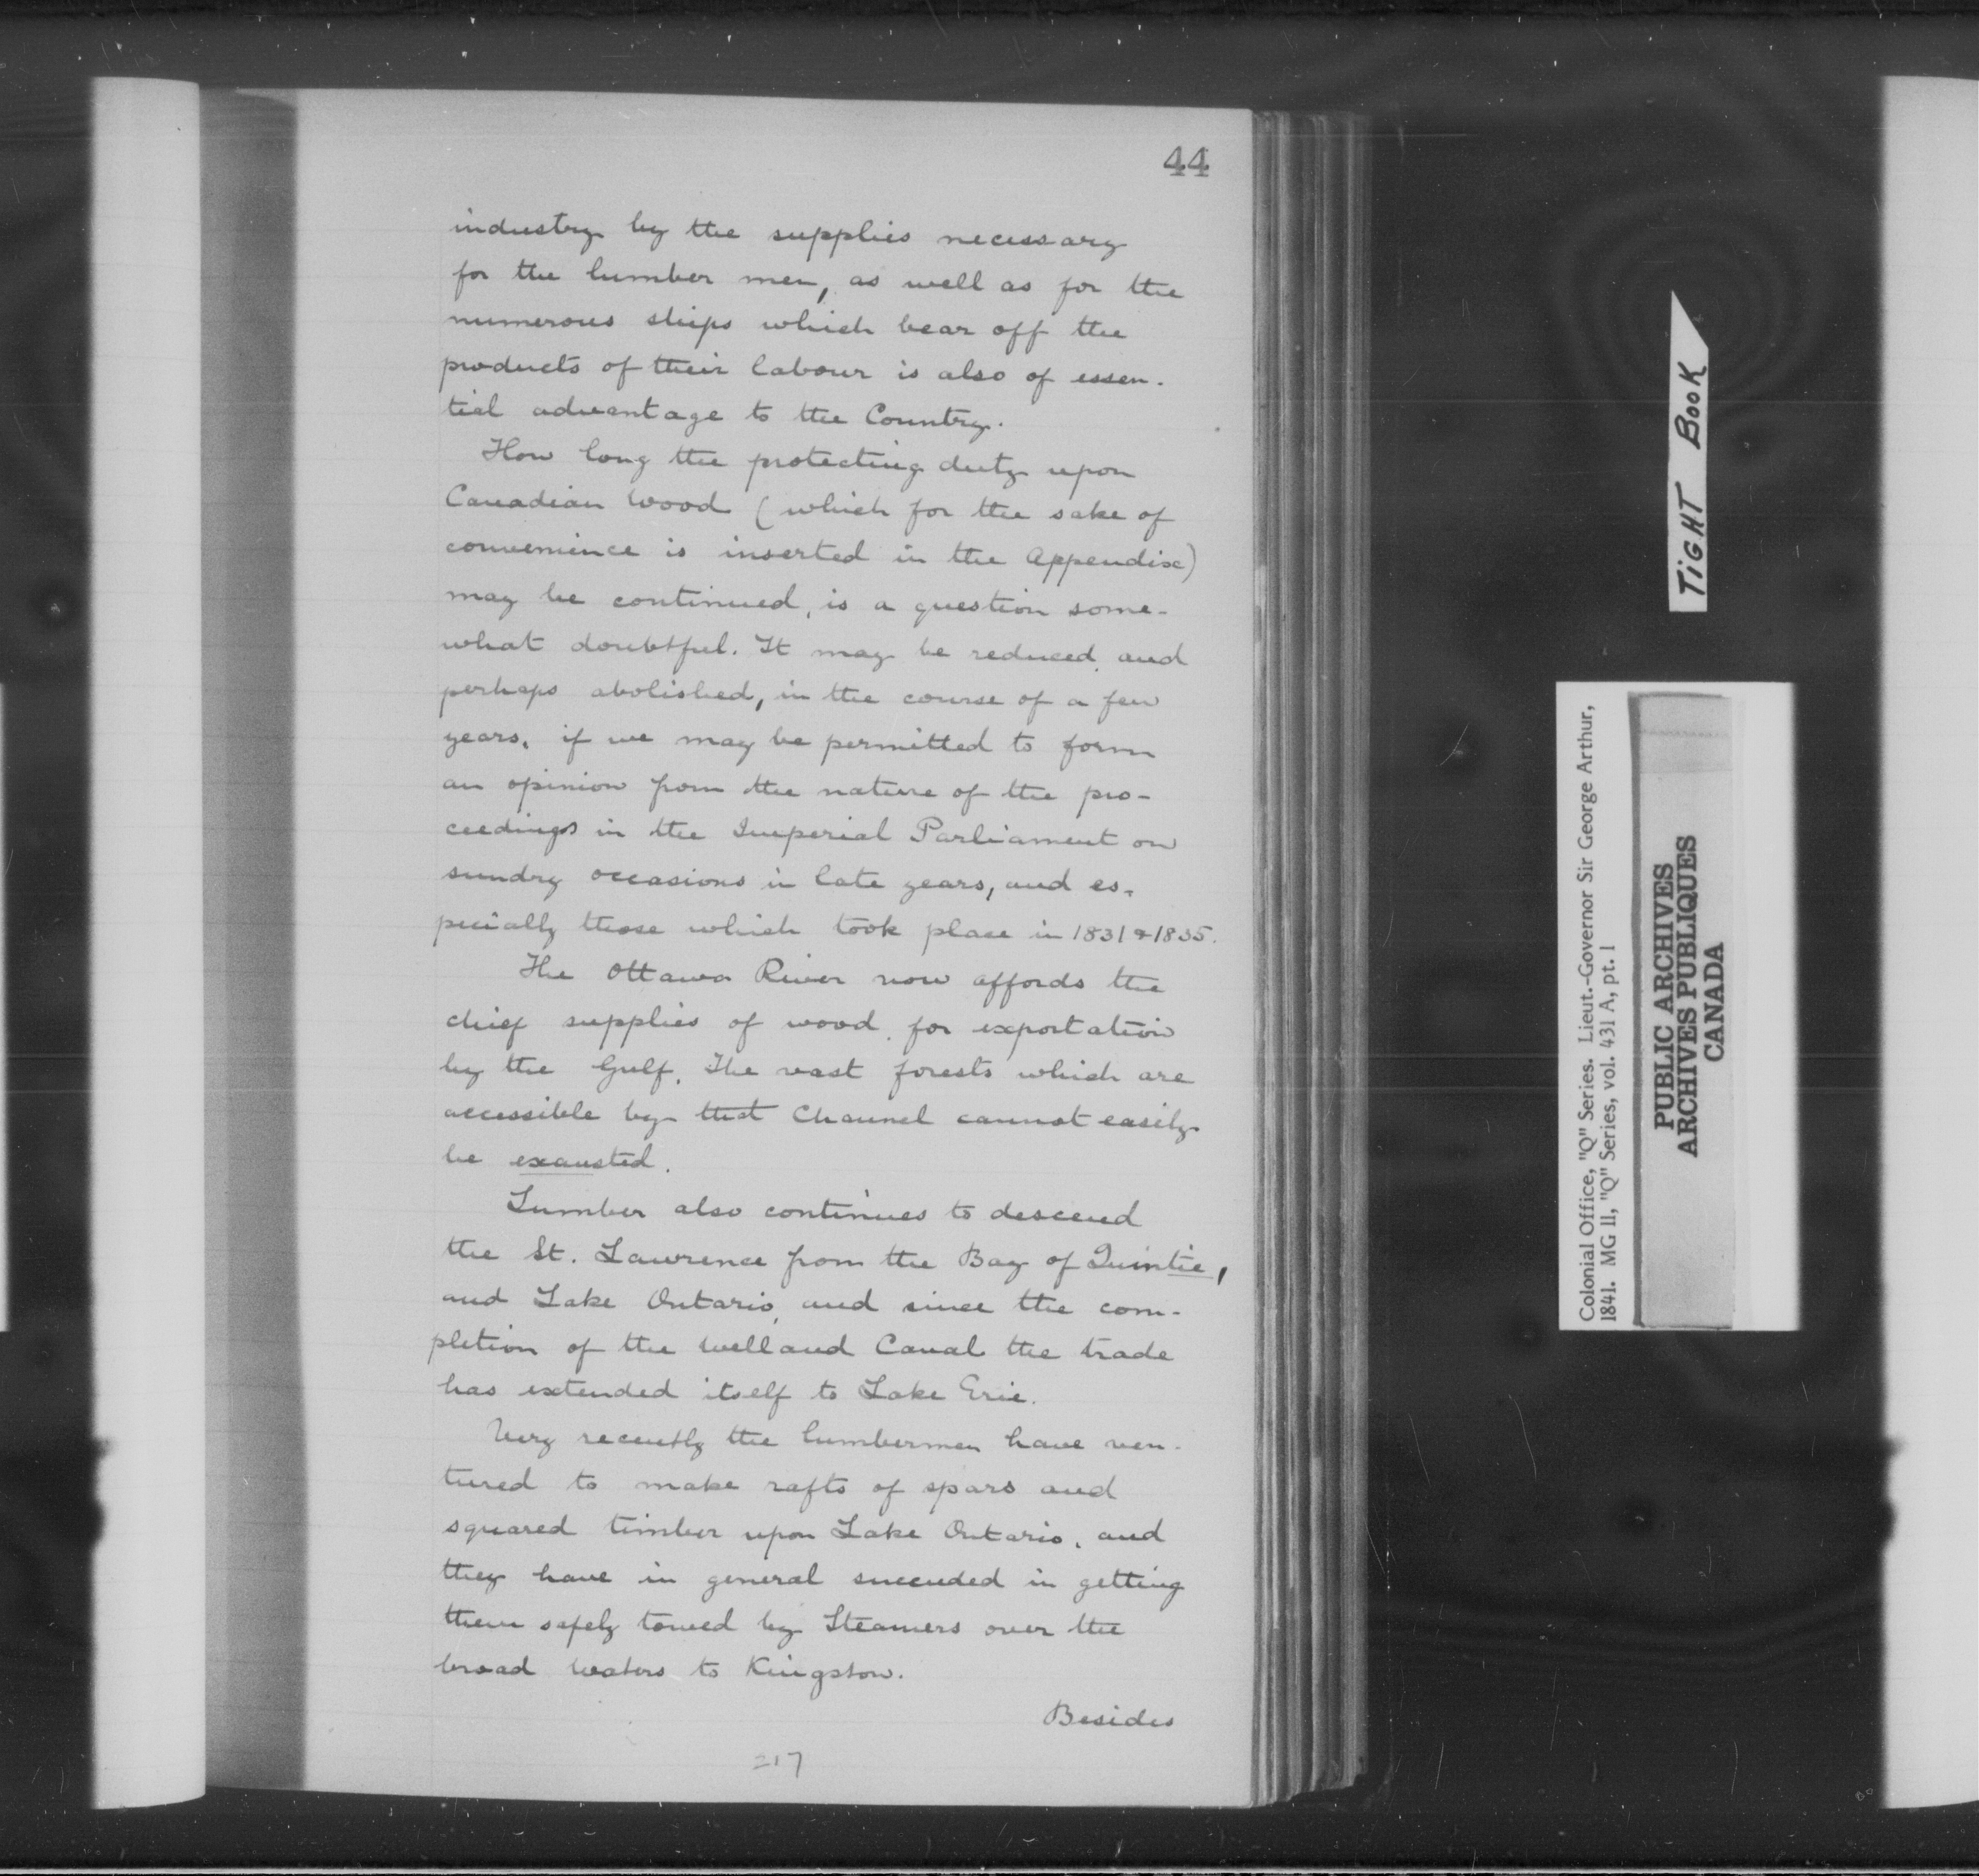 44
industry by the supplies necessary
for the lumber men, as well as for the
numerous ships which bear off the
products of their labour is also of essen-
tial advantage to the Country.
How long the protecting duty upon
Canadian Wood (which for the sake of
convenience is inserted in the Appendix)
may be continued, is a question some-
what doubtful. It may be reduced, and
perhaps abolished, in the course of a few
years, if we may be permitted to form
an opinion from the nature of the pro-
ceedings in the Imperial Parliament on
sundry occasions in late years, and es-
pecially those which took place in 1831 & 1835.
The Ottawa River now affords the
chief supplies of wood for exportation
by the Gulf. The vast forests which are
accessible by that Channel cannot easily
be exausted.
Lumber also continues to descend
the St. Lawrence from the Bay of Quintie,
and Lake Ontario, and since the com-
pletion of the Welland Canal the trade
has extended itself to Lake Erie.
Very recently the lumbermen have ven-
tured to make rafts of spars and
squared timber upon Lake Ontario, and
they have in general succeeded in getting
them safely towed by Steamers over the
broad waters to Kingston.
Besides
217
TIGHT BOOK
Colonial Office, "Q" Series. Lieut.-Governor Sir George Arthur,
1841. MG 11, "Q" Series, vol. 431 A, pt. 1
PUBLIC ARCHIVES
ARCHIVES PUBLIQUES
CANADA